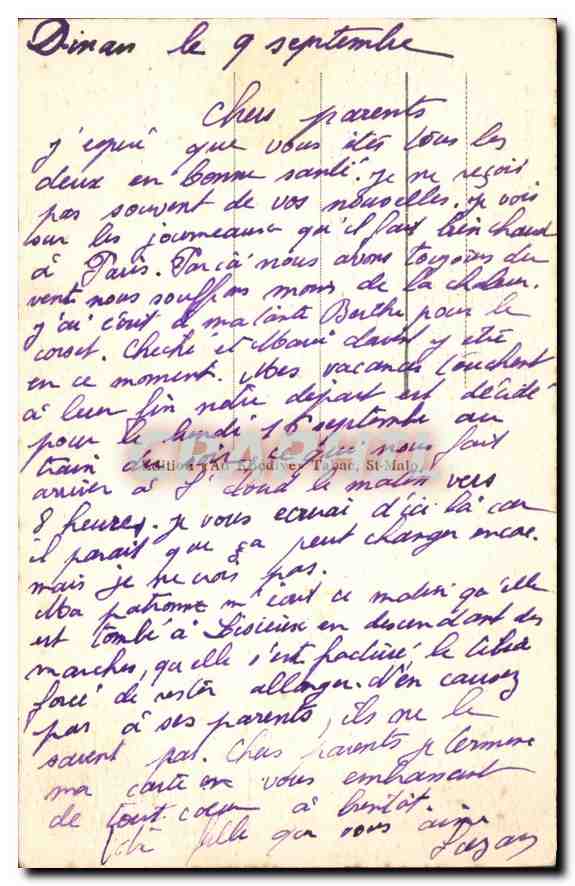 Dinan le 9 septembre
Chers parents
j'espère que vous êtes tous les
deux en bonne santé. je ne reçois
pas souvent de vos nouvelles. je vois
sur les journeaux qu'il fait bien chaud
à Paris. Par là nous avons toujours du
vent nous souffrons moins de la chaleur.
j'ai écrit à ma tante Berthe pour le
corset. et Marie y etre
en ce moment. Mes vacances touchent
à leur fin notre départ est décidé
pour le lundi 16 septembre au
train du soir, ce qui nous fait
Edition "Au Khédive" Tabac, St-Malo.
arriver à St Cloud le matin vers
8 heures. je vous ecrirai d'ici là car
il parait que ça peut changer encore.
mais je ne crois pas.
Ma patronne m'écrit ce matin qu'elle
est tombé à Lisieux en descendant des
marches, qu'elle s'est facturé le tibia
forcé de rester allonger. N'en causez
pas à ses parents, ils ne le
savent pas. Chers parents je termine
ma carte en vous embrassant
de tout coeur à bientôt.
fille qui vous aime